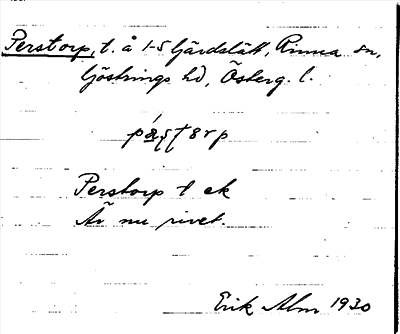 Perstorp, t. å 1-5 Gärdslätt, Rinna sn,
Göstrings hd, Österg. l.
Perstorp t ek
Är nu rivet.
Erik Alm 1930